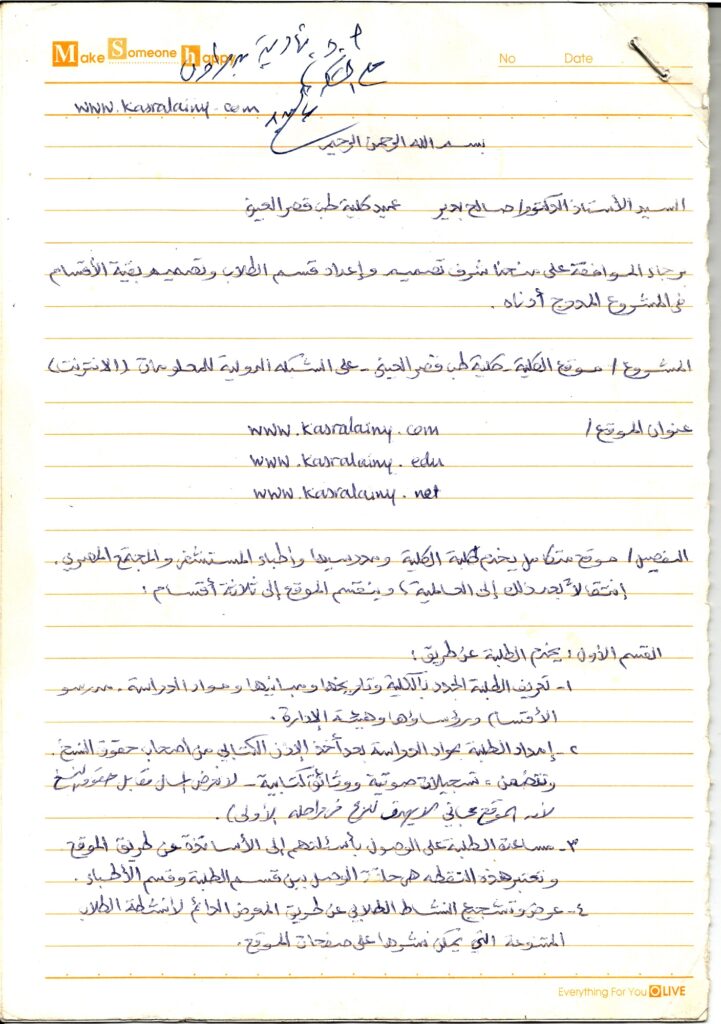 Make Someone happy
No Date
أ.د. نادية
www.kasralainy.com
بسم الله الرحمن الرحيم
السيد الأستاذ الدكتور/ صالح بدير عميد كلية طب قصر العيني
برجاء الموافقة على منحنا شرف تصميم وإعداد قسم الطلاب وتصميم بقية الأقسام
في المشروع المدرج أدناه .
المشروع / موقع الكلية - كلية طب قصر العيني - على الشبكة الدولية للمعلومات (الانترنت)
عنوان الموقع / www.kasralainy.com
www.kasralainy.edu
www.kasralainy.net
التفصيل / موقع متكامل يخدم طلبة الكلية ومدرسيها وأطباء المستشفى والمجتمع المصري .
إنتقالاً بعد ذلك إلى العالمية ، وينقسم الموقع إلى ثلاثة أقسام :
القسم الأول : يخدم الطلبة عن طريق :
١- تعريف الطلبة الجدد بالكلية وتاريخها ومبانيها ومواد الدراسة - مدرسو
الأقسام ورؤساؤها وهيئة الإدارة .
٢- إمداد الطلبة بمواد الدراسة بعد أخذ الإذن الكتابي من أصحاب حقوق النسخ .
وتتضمن : تسجيلات صوتية ووثائق كتابية - لا نعرض مقابل حقوق النسخ
لأنه الموقع مجاني لا يهدف للربح في مراحله الأولى) .
٣- مساعدة الطلبة على الوصول بأسئلتهم إلى الأساتذة عن طريق الموقع
وتعتبر هذه النقطة هي حلقة الوصل بين قسم الطلبة وقسم الأطباء .
٤- عرض وتشجيع النشاط الطلابي عن طريق المعرض الدائم لأنشطة الطلاب
المتنوعة التي يمكن نشرها على صفحات الموقع .
Everything For You OLIVE